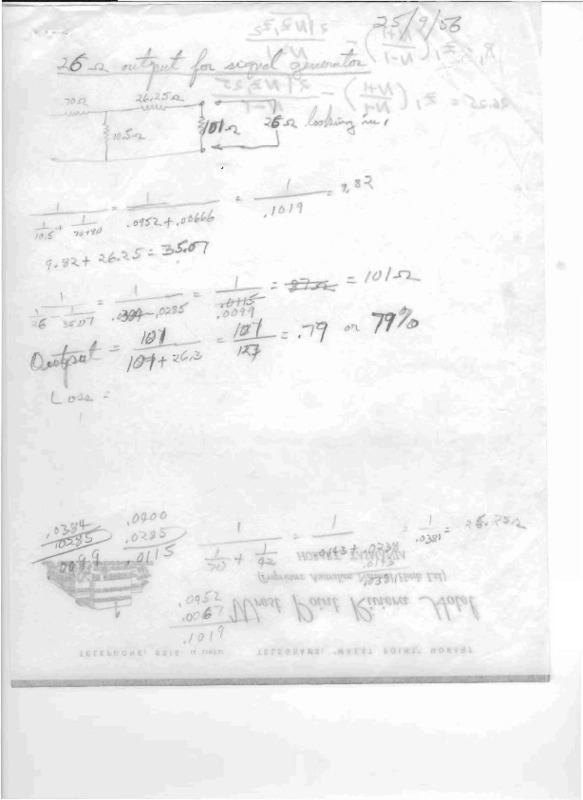 25/9/56
26 Ω output for signal generator
70Ω 26.25Ω
10.5Ω 101Ω 26Ω looking in,
1 / (1/10.5 + 1/70+80) = 1 / (.0952 + .00666) = 1 / .1019 = 9.82
9.82 + 26.25 = 35.07
1 / (1/26 - 1/35.07) = 1 / (.0384 - .0285) = 1 / .0115 .0099 = 87Ω = 101Ω
Output = 101 / (101 + 26.3) = 101 / 127 = .79 or 79%
Loss =
.0384 .0400
.0285 .0285
.0099 .0115
1 / (1/70 + 1/42) = 1 / (.0143 + .0238) = 1 / .0381 = 26.25Ω
.0143
.0381
HOBART TASMANIA
.0952
.0067
.1019
Wrest Point Riviera Hotel
TELEGRAMS: "WREST POINT" HOBART